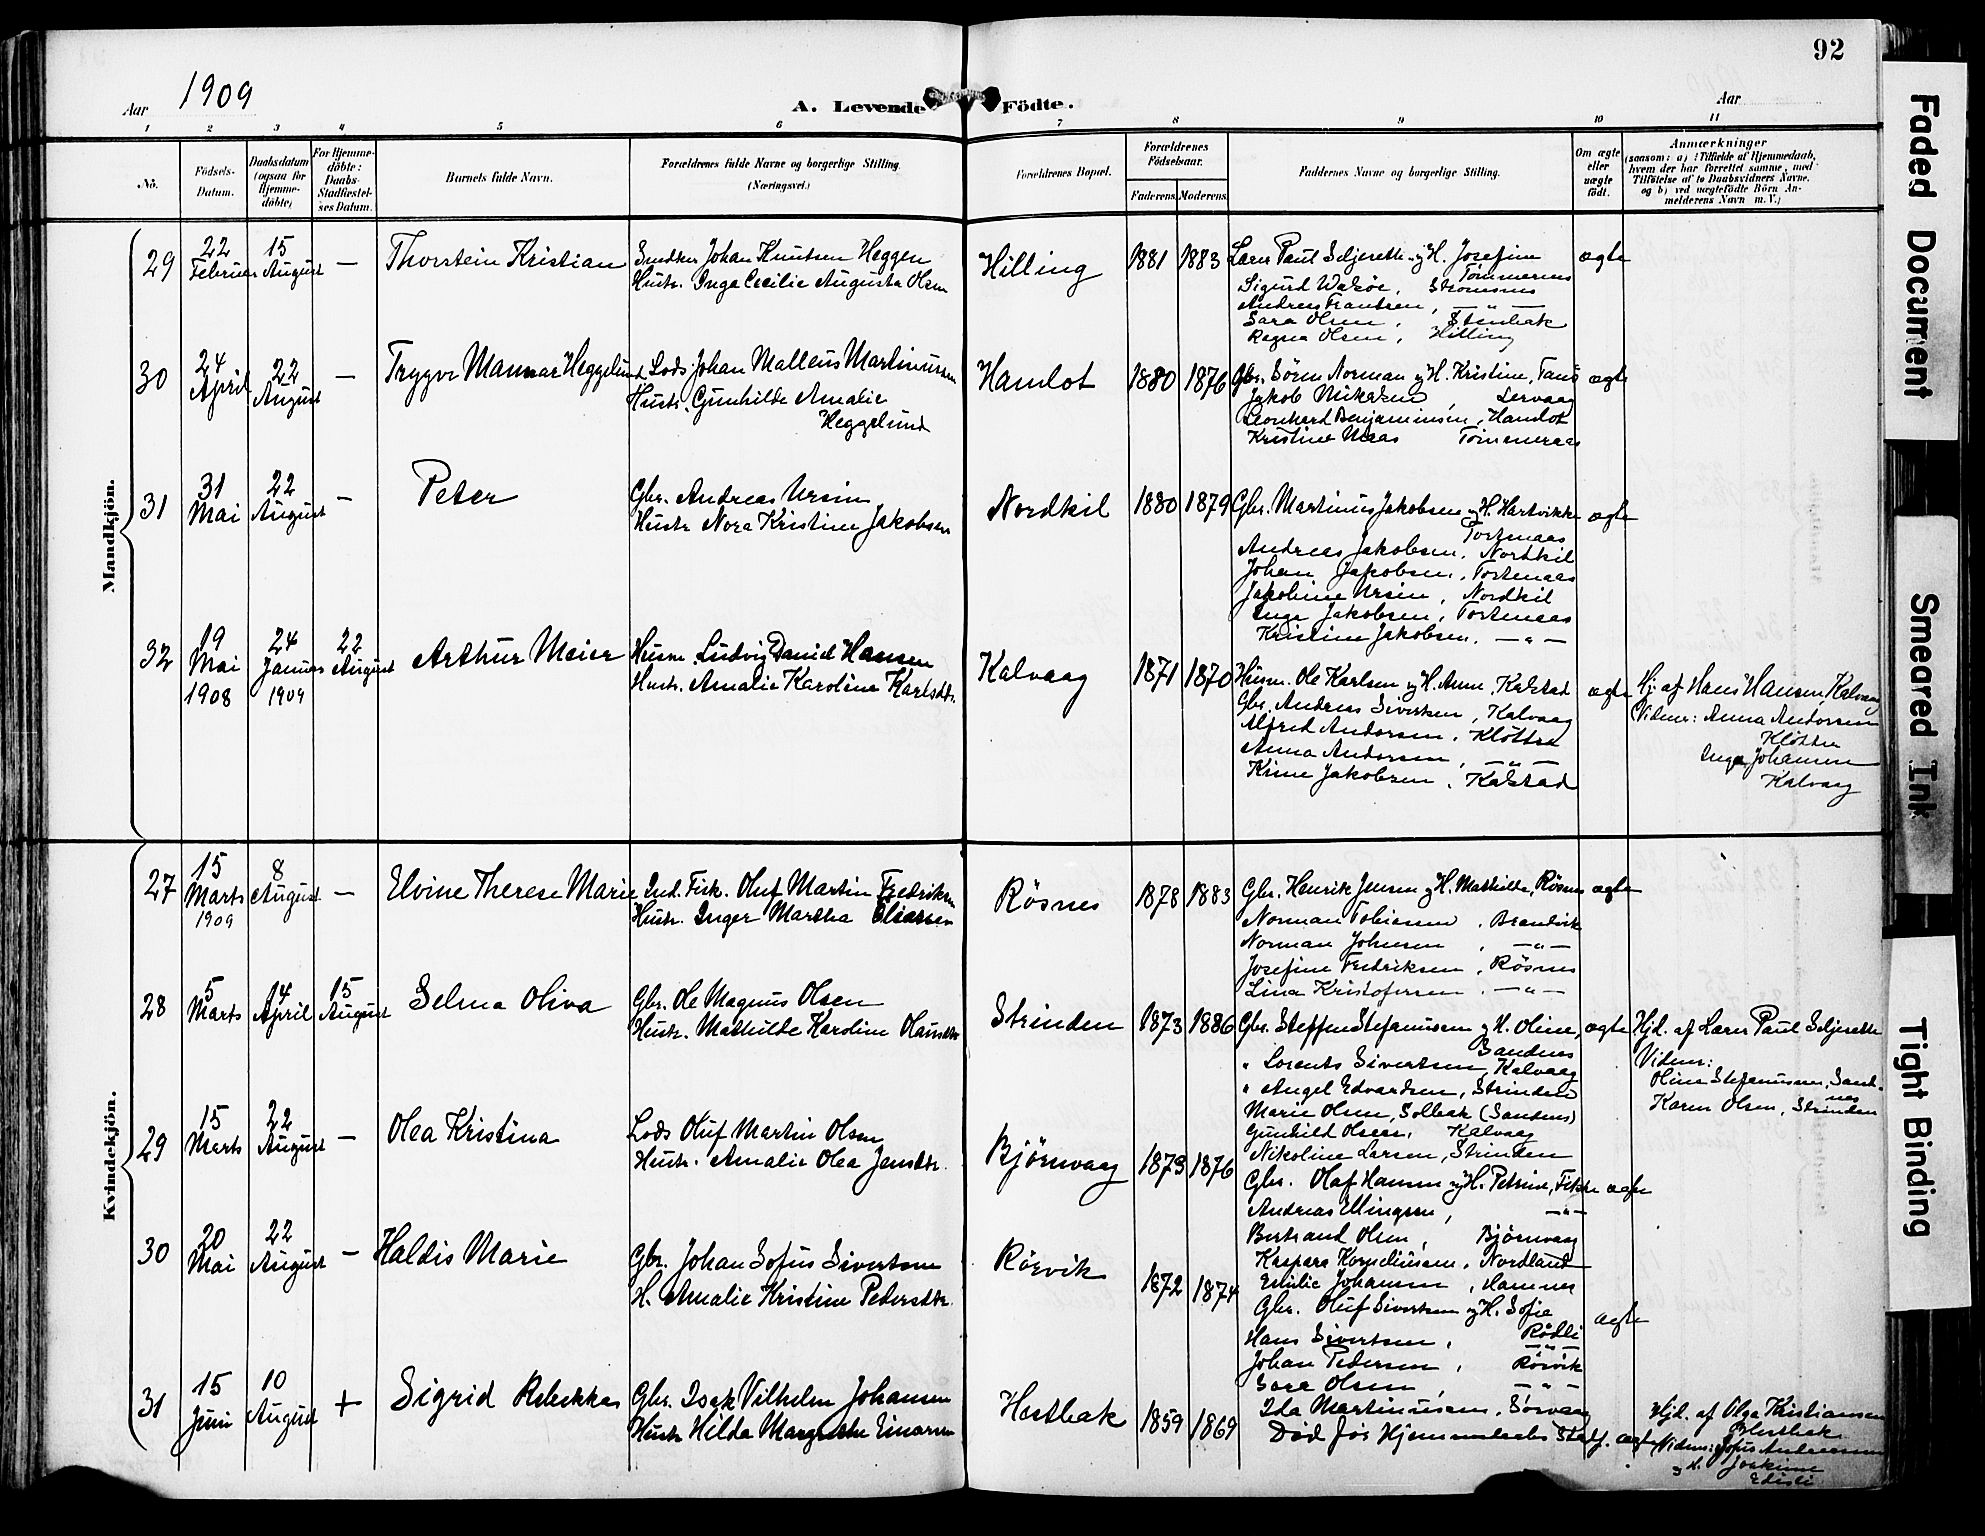 92
Aar 1909
A. Levende Födte.
Aar
1 2 3 4 5 6 7 8 9 10 11
No.
Födsels-
Datum.
Daabsdatum
(ogsaa for
Hjemme-
döbte)
For Hjemme-
döbte:
Daabs-
Stadfæstel-
ses Datum.
Barnets fulde Navn.
Forældrenes fulde Navne og borgerlige Stilling.
(Næringsvei.)
Forældrenes Bopæl.
Forældrenes
Födselsaar.
Faderens Moderens
Faddernes Navne og borgerlige Stilling.
Om ægte
eller
uægte
födt.
Anmærkninger
(saasom: a) i Tilfælde af Hjemmedaab,
hvem der har forrettet samme, med
Tilføielse af to Daabsvidners Navne,
og b) ved uægtefödte Börn An-
melderens Navn m. V.)
Mandkjön.
29
22
Februar
15
August
—
Thorstein Kristian
Snedker Johan Knutsen Heggen
Hustr. Inga Cecilie Augusta Olsen
Hilling
1881 1883
Lærer Paul Seljeseth og H. Josefine
Tømmernes
Sigurd Walsøe, Strømsnes
Andreas Frantsen, — „ —
Sara Olsen, Stenbak
Ragna Olsen, Hilling
ægte
30
24
April
22
August
—
Trygve Mannar Heggelund
Lods Johan Malleus Martinussen
Hustr. Gunhilde Amalie
Heggelund
Hamlot
1880 1876
Gbr. Sören Norman og H. Kristine,
Jakob Mikalsen, Lervaag
Leonhard Benjaminsen, Hamlot
Kristine Tömmeraas
ægte
31
31
Mai
22
August
—
Peter
Gbr. Andreas Ursin
Hustr Nora Kristine Jakobsen
Nordkil
1880 1879
Gbr. Martinus Jakobsen og H. Hartvikke
Andreas Jakobsen, Nordkil
Johan Jakobsen,
Jakobine Ursin, Nordkil
Inga Jakobsen,
Kristine Jakobsen, — „ —
ægte
32
19
Mai
1908
24
Januar
1909
22
August
Arthur Meier
Husm. Ludvig Daniel Hansen
Hustr. Amalie Karoline Karlsdtr.
Kalvaag
1871 1870
Husm. Ole Karlsen og H. Anne, Kalstad
Gbr. Andreas Sivertsen, Kalvaag
Alfred Andersen, Kløttra
Anna Andersen, — „ —
Krine Jakobsen, Kalstad
ægte
Hj. af Hans Hansen, Kalvaag
Vidner: Anna Andersen
Kløttra
Inga Johansen
Kalvaag
Kvindekjön.
27
15
Marts
1909
8
August
—
Elvine Therese Marie
Ind. Fisk. Oluf Martin Fredriksen
Hustr. Inger Martha Eliassen
Røsnes
1878 1883
Gbr. Henrik Jensen og H. Mathilde, Røsnes
Norman Tobiassen, Brandvik
Norman Johnsen, — „ —
Josefine Fredriksen, Røsnes
Lina Kristofersen, — „ —
ægte
28
5
Marts
14
April
15
August
Selma Oliva
Gbr. Ole Magnus Olsen
Hustr. Mathilde Karoline Hansdtr
Strinden
1873 1886
Gbr. Steffen Stefanussen og H. Oline,
Sandnes
„ Lorents Sivertsen, Kalvaag
„ Angel Edvardsen, Strinden
Marie Olsen, Solbak (Sandnes)
Gunhild Olsen, Kalvaag
Nikoline Larsen, Strinden
ægte
Hjd. af Lærer Paul Seljeseth
Vidner:
Oline Stefanussen, Sand-
nes
Karen Olsen, Strinden
29
15
Marts
22
August
—
Olea Kristina
Lods Oluf Martin Olsen
Hustr. Amalie Olea Jensdtr.
Bjørnvaag
1873 1876
Gbr. Olaf Hansen og H. Petrine, Fikke
Andreas Ellingsen, — „ —
Bertrand Olsen, Bjørnvaag
Kaspara Korneliussen, Nordland
Emilie Johansen, Hamnes
ægte
30
20
Mai
22
August
—
Haldis Marie
Gbr. Johan Sofus Sivertsen
H. Amalie Kristine Pedersdtr.
Rörvik
1872 1874
Gbr. Oluf Sivertsen og H. Sofie
Rødli
Hans Sivertsen, — „ —
Johan Pedersen, Rörvik
Sara Olsen, — „ —
Ida Martinussen, Sörvaag
ægte
31
15
Juni
10
August
+
Sigrid Rebekka
Gbr. Isak Vilhelm Johansen
Hustr Hilda Margrethe Einarsen
Hestbak
1859 1869
Död för Hjemmedaabs Stadf.
ægte
Hjd. af Olga Kristiansen
Hestbak
Vidner: Sofus Andreassen
og H. Joakime
Faded Document
Smeared Ink
Tight Binding